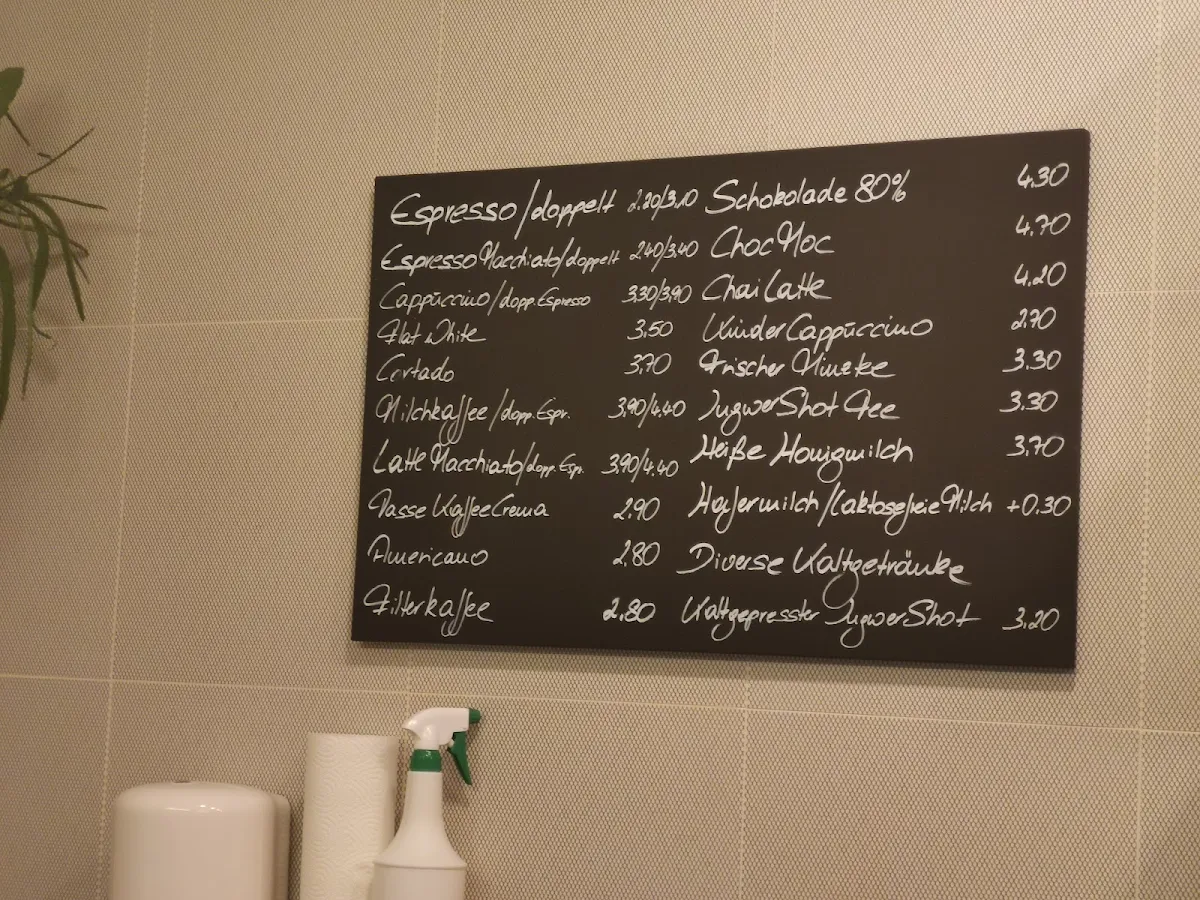 Espresso/doppelt 2.20/3.10
Espresso Macchiato/doppelt 2.40/3.40
Cappuccino/dopp. Espresso 3.30/3.90
Flat White 3.50
Cortado 3.70
Milchkaffee/dopp. Espr. 3.90/4.40
Latte Macchiato/dopp. Esp. 3.90/4.40
Tasse Kaffee Crema 2.90
Americano 2.80
Filterkaffee 2.80
Schokolade 80% 4.30
Choc Moc 4.70
Chai Latte 4.20
Kinder Cappuccino 2.70
Frischer Minztee 3.30
Ingwer Shot Tee 3.30
Heiße Honigmilch 3.70
Hafermilch/laktosefreie Milch +0.30
Diverse Kaltgetränke
Kaltgepresster Ingwer Shot 3.20